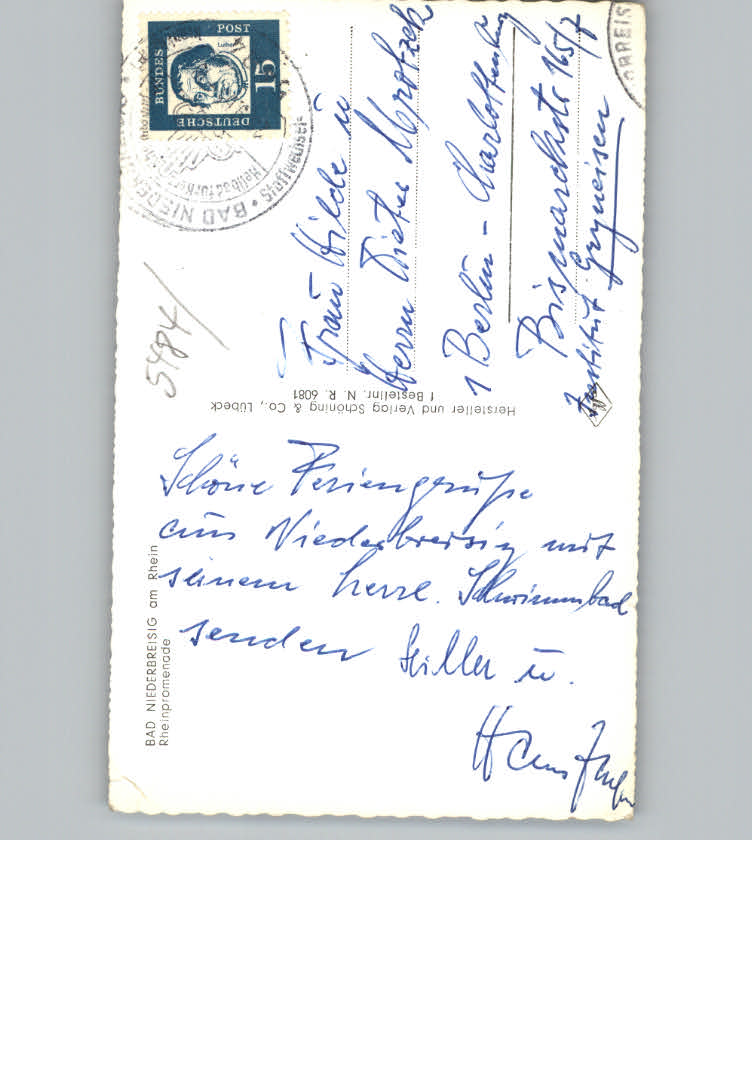 DEUTSCHE
BUNDES
POST
Luther
15
BAD NIEDER
Heilbad für
5484/
Frau Hilde u
Herrn Dieter Mrotzek
1 Berlin - Charlottenburg
Bismarckstr 165/7
Institut Gryneisen
Hersteller und Verlag Schöning & Co., Lübeck
f Bestellnr. N. R. 6081
BAD NIEDERBREISIG am Rhein
Rheinpromenade
Schöne Feriengrüße
aus Niederbreisig mit
seinem herrl. Schwimmbad
senden u.
Hans